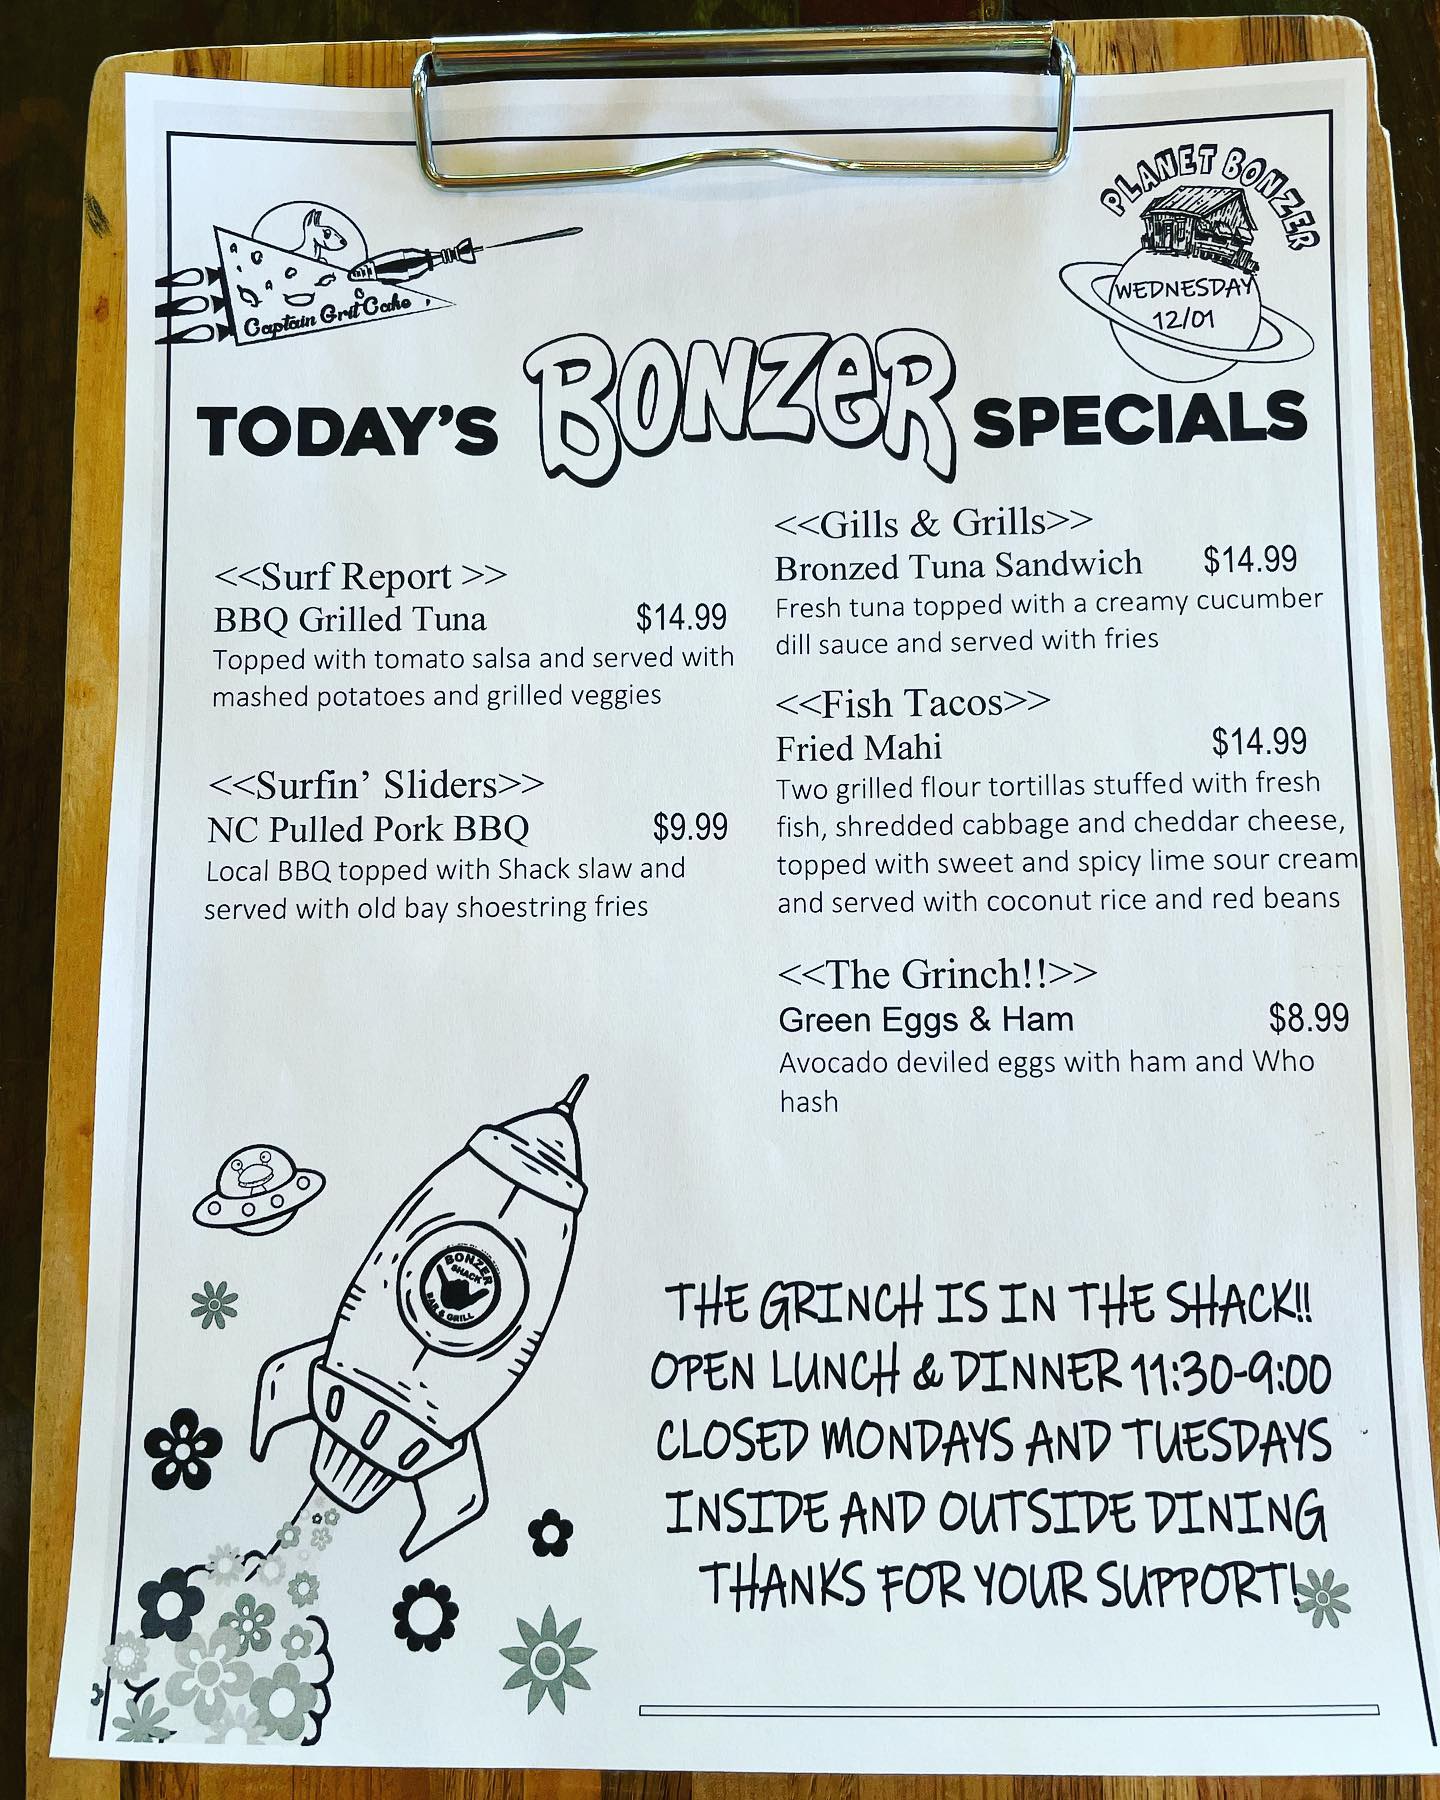 PLANET BONZER
WEDNESDAY
12/01
Captain Grit Cake
TODAY'S BONZER SPECIALS
<<Surf Report >>
BBQ Grilled Tuna $14.99
Topped with tomato salsa and served with
mashed potatoes and grilled veggies
<<Surfin' Sliders>>
NC Pulled Pork BBQ $9.99
Local BBQ topped with Shack slaw and
served with old bay shoestring fries
<<Gills & Grills>>
Bronzed Tuna Sandwich $14.99
Fresh tuna topped with a creamy cucumber
dill sauce and served with fries
<<Fish Tacos>>
Fried Mahi $14.99
Two grilled flour tortillas stuffed with fresh
fish, shredded cabbage and cheddar cheese,
topped with sweet and spicy lime sour cream
and served with coconut rice and red beans
<<The Grinch!!>>
Green Eggs & Ham $8.99
Avocado deviled eggs with ham and Who
hash
BONZER
SHACK
BAR & GRILL
THE GRINCH IS IN THE SHACK!!
OPEN LUNCH & DINNER 11:30-9:00
CLOSED MONDAYS AND TUESDAYS
INSIDE AND OUTSIDE DINING
THANKS FOR YOUR SUPPORT!